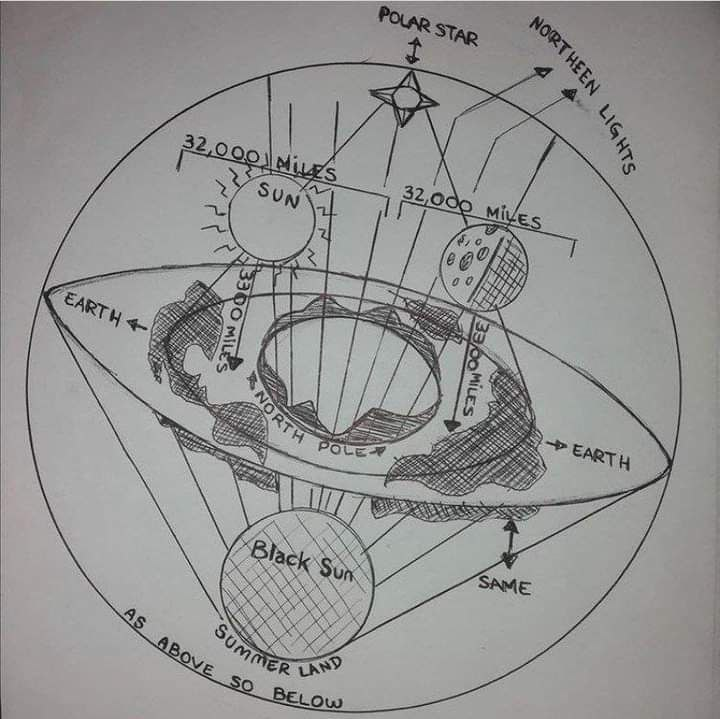 POLAR STAR
NORTHEEN LIGHTS
32,000 MILES
SUN
32,000 MILES
3300 MILES
3300 MILES
EARTH
NORTH POLE
EARTH
Black Sun
SAME
SUMMER LAND
AS ABOVE SO BELOW